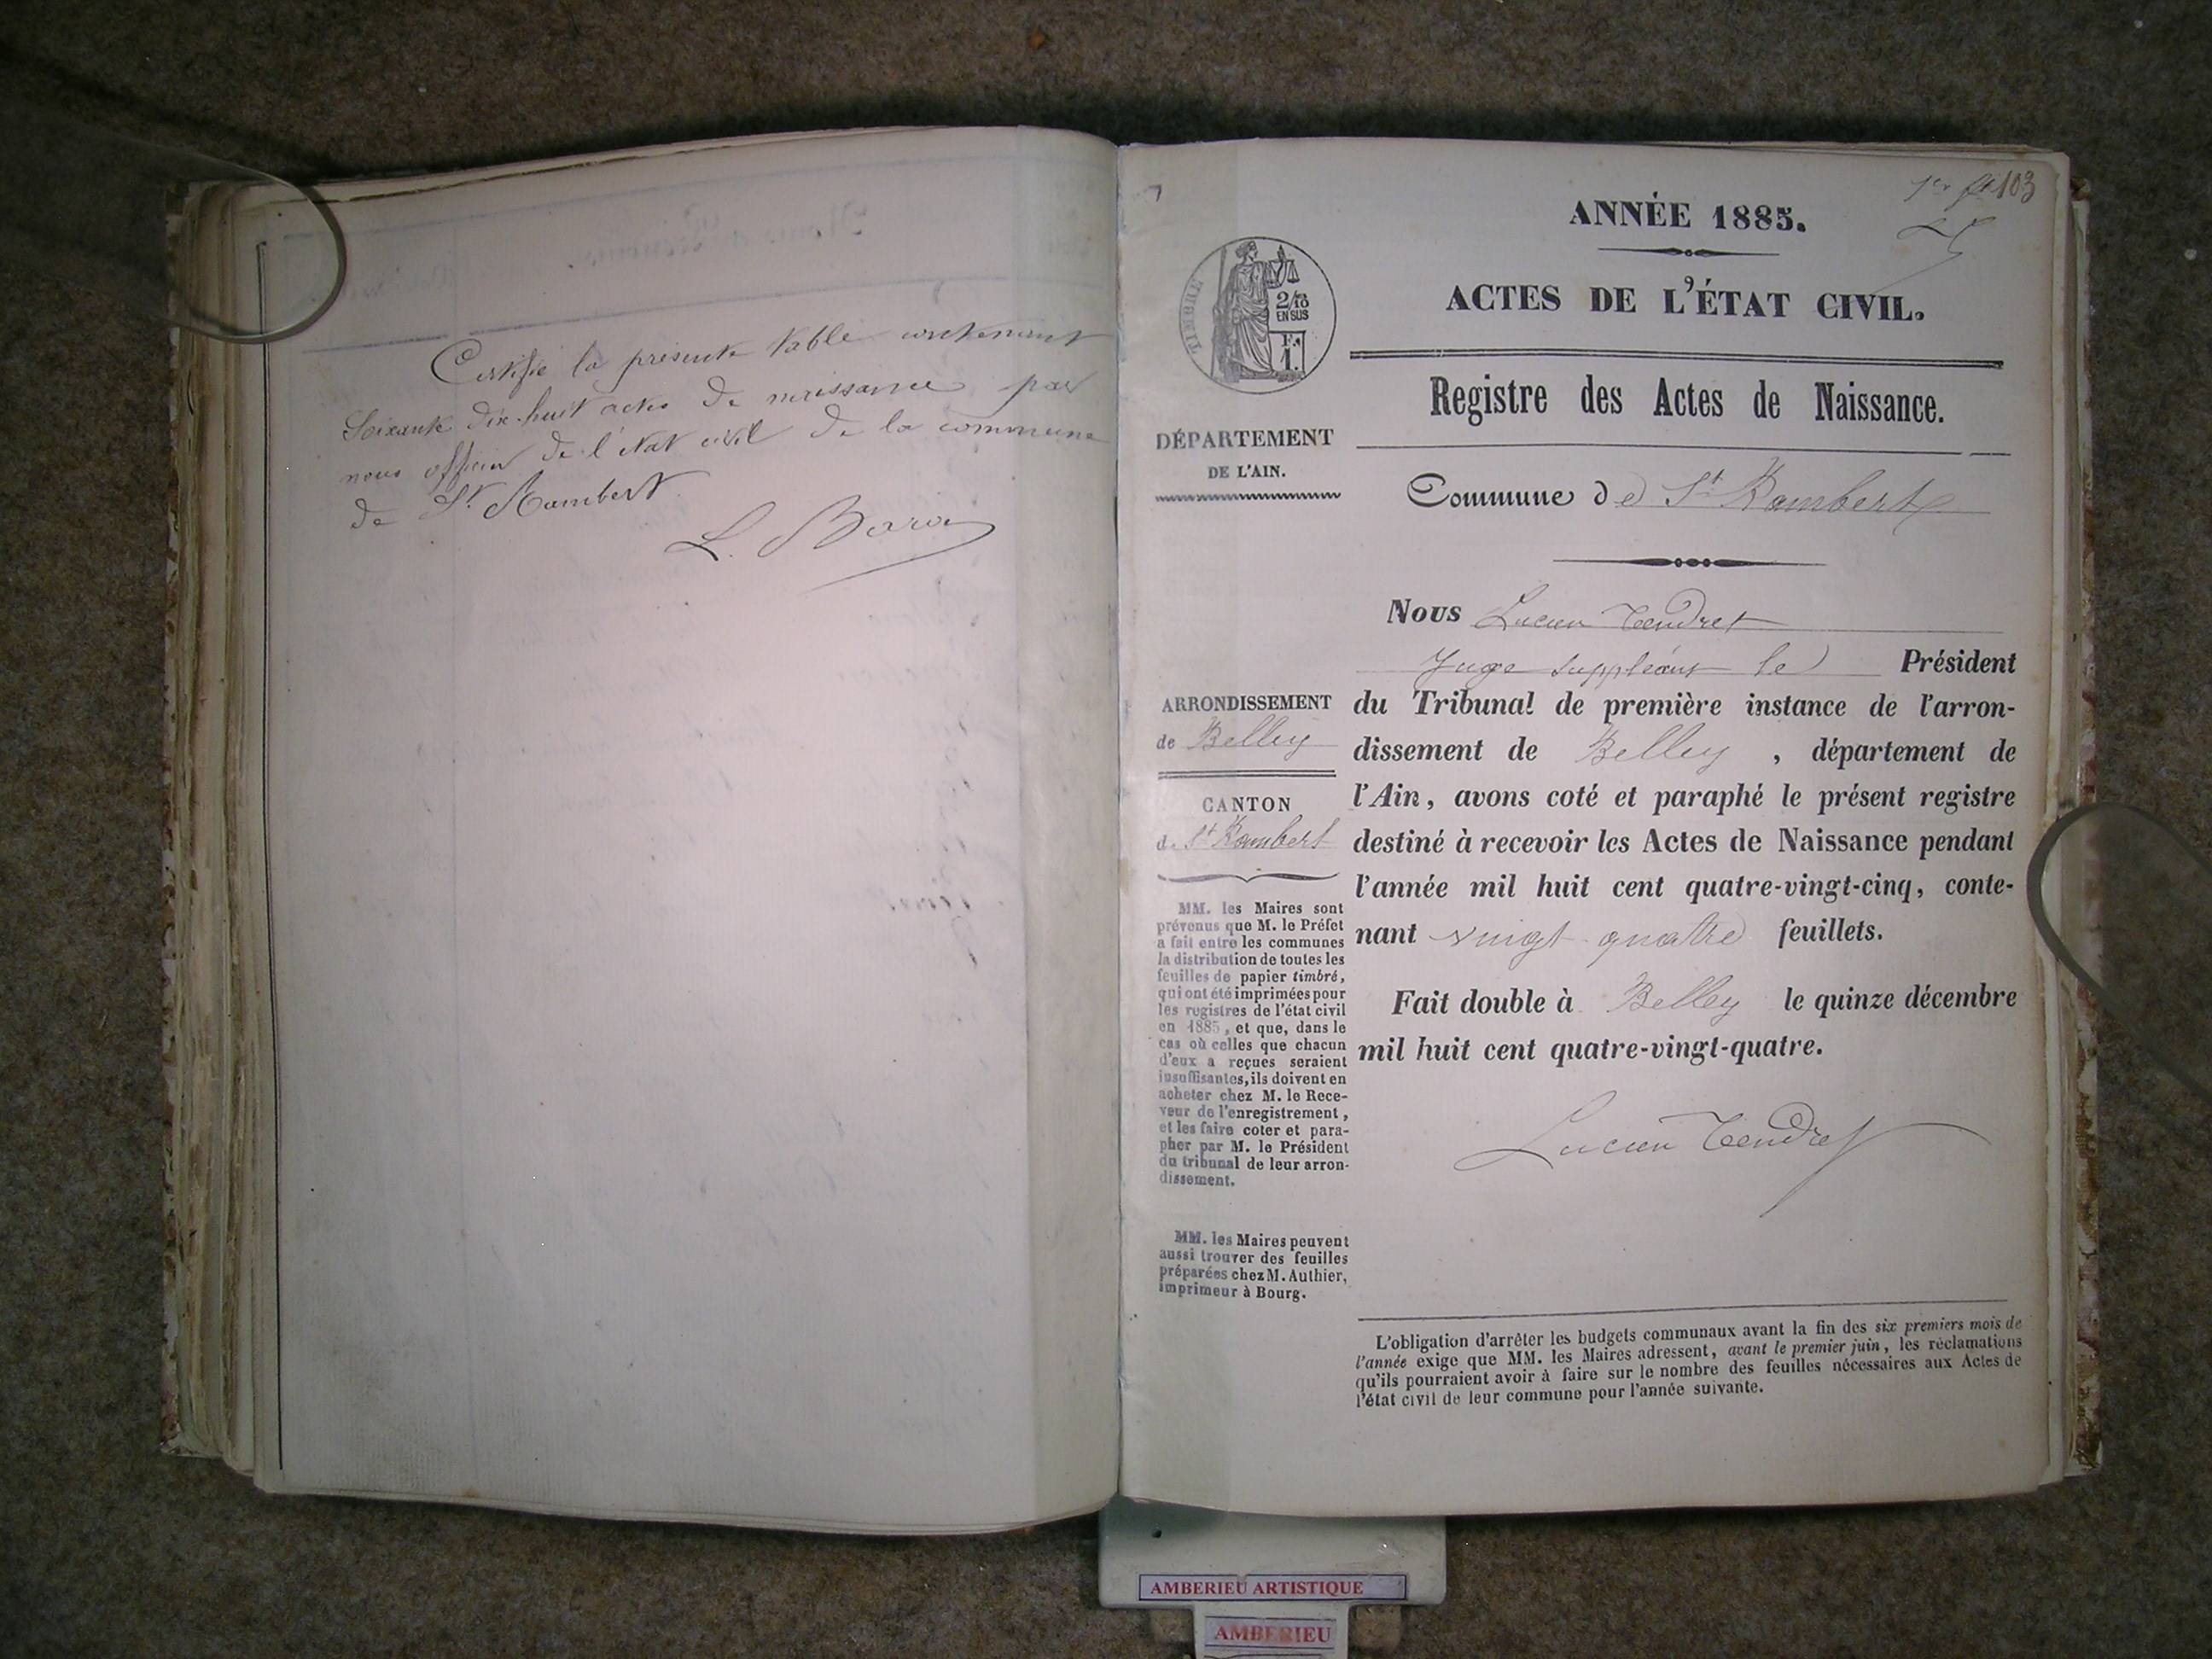 Certifié la présente table contenant
Soixante dix-huit actes de naissance par
nous officier de l'état civil de la commune
de St Rambert
1er 103
ANNÉE 1885.
ACTES DE L'ÉTAT CIVIL.
TIMBRE
2/10
EN SUS
F.
1.
Registre des Actes de Naissance.
DÉPARTEMENT
DE L'AIN.
Commune de St Rambert
Nous Lucien Tendret
Juge suppléant le Président
du Tribunal de première instance de l'arron-
dissement de Belley, département de
l'Ain, avons coté et paraphé le présent registre
destiné à recevoir les Actes de Naissance pendant
l'année mil huit cent quatre-vingt-cinq, conte-
nant vingt quatre feuillets.
Fait double à Belley le quinze décembre
mil huit cent quatre-vingt-quatre.
Lucien Tendret
ARRONDISSEMENT
de Belley
CANTON
de St Rambert
MM. les Maires sont
prévenus que M. le Préfet
a fait entre les communes
la distribution de toutes les
feuilles de papier timbré,
qui ont été imprimées pour
les registres de l'état civil
en 1885, et que, dans le
cas où celles que chacun
d'eux a reçues seraient
insuffisantes, ils doivent en
acheter chez M. le Rece-
veur de l'enregistrement,
et les faire coter et para-
pher par M. le Président
du tribunal de leur arron-
dissement.
MM. les Maires peuvent
aussi trouver des feuilles
préparées chez M. Authier,
imprimeur à Bourg.
L'obligation d'arrêter les budgets communaux avant la fin des six premiers mois de
l'année exige que MM. les Maires adressent, avant le premier juin, les réclamations
qu'ils pourraient avoir à faire sur le nombre des feuilles nécessaires aux Actes de
l'état civil de leur commune pour l'année suivante.
AMBERIEU ARTISTIQUE
AMBERIEU